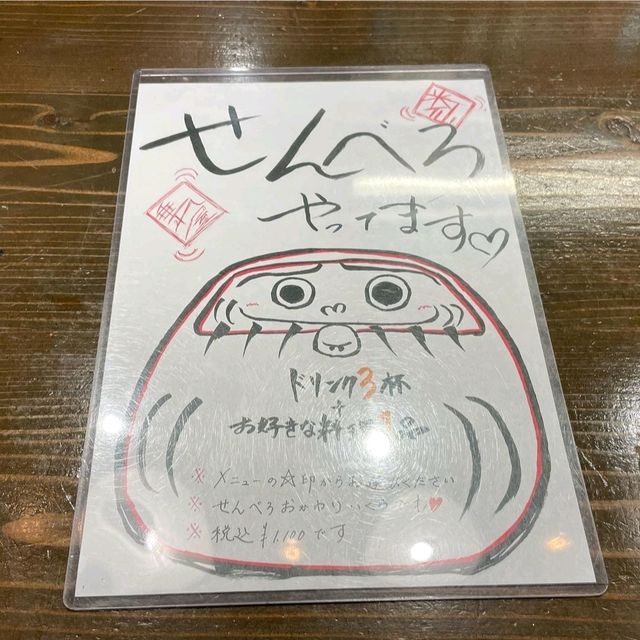 せんべろ
やってます♡
ドリンク3杯
+
お好きな料理1品
※メニューの☆印からお選びください
※せんべろおかわり
※税込¥1,100です